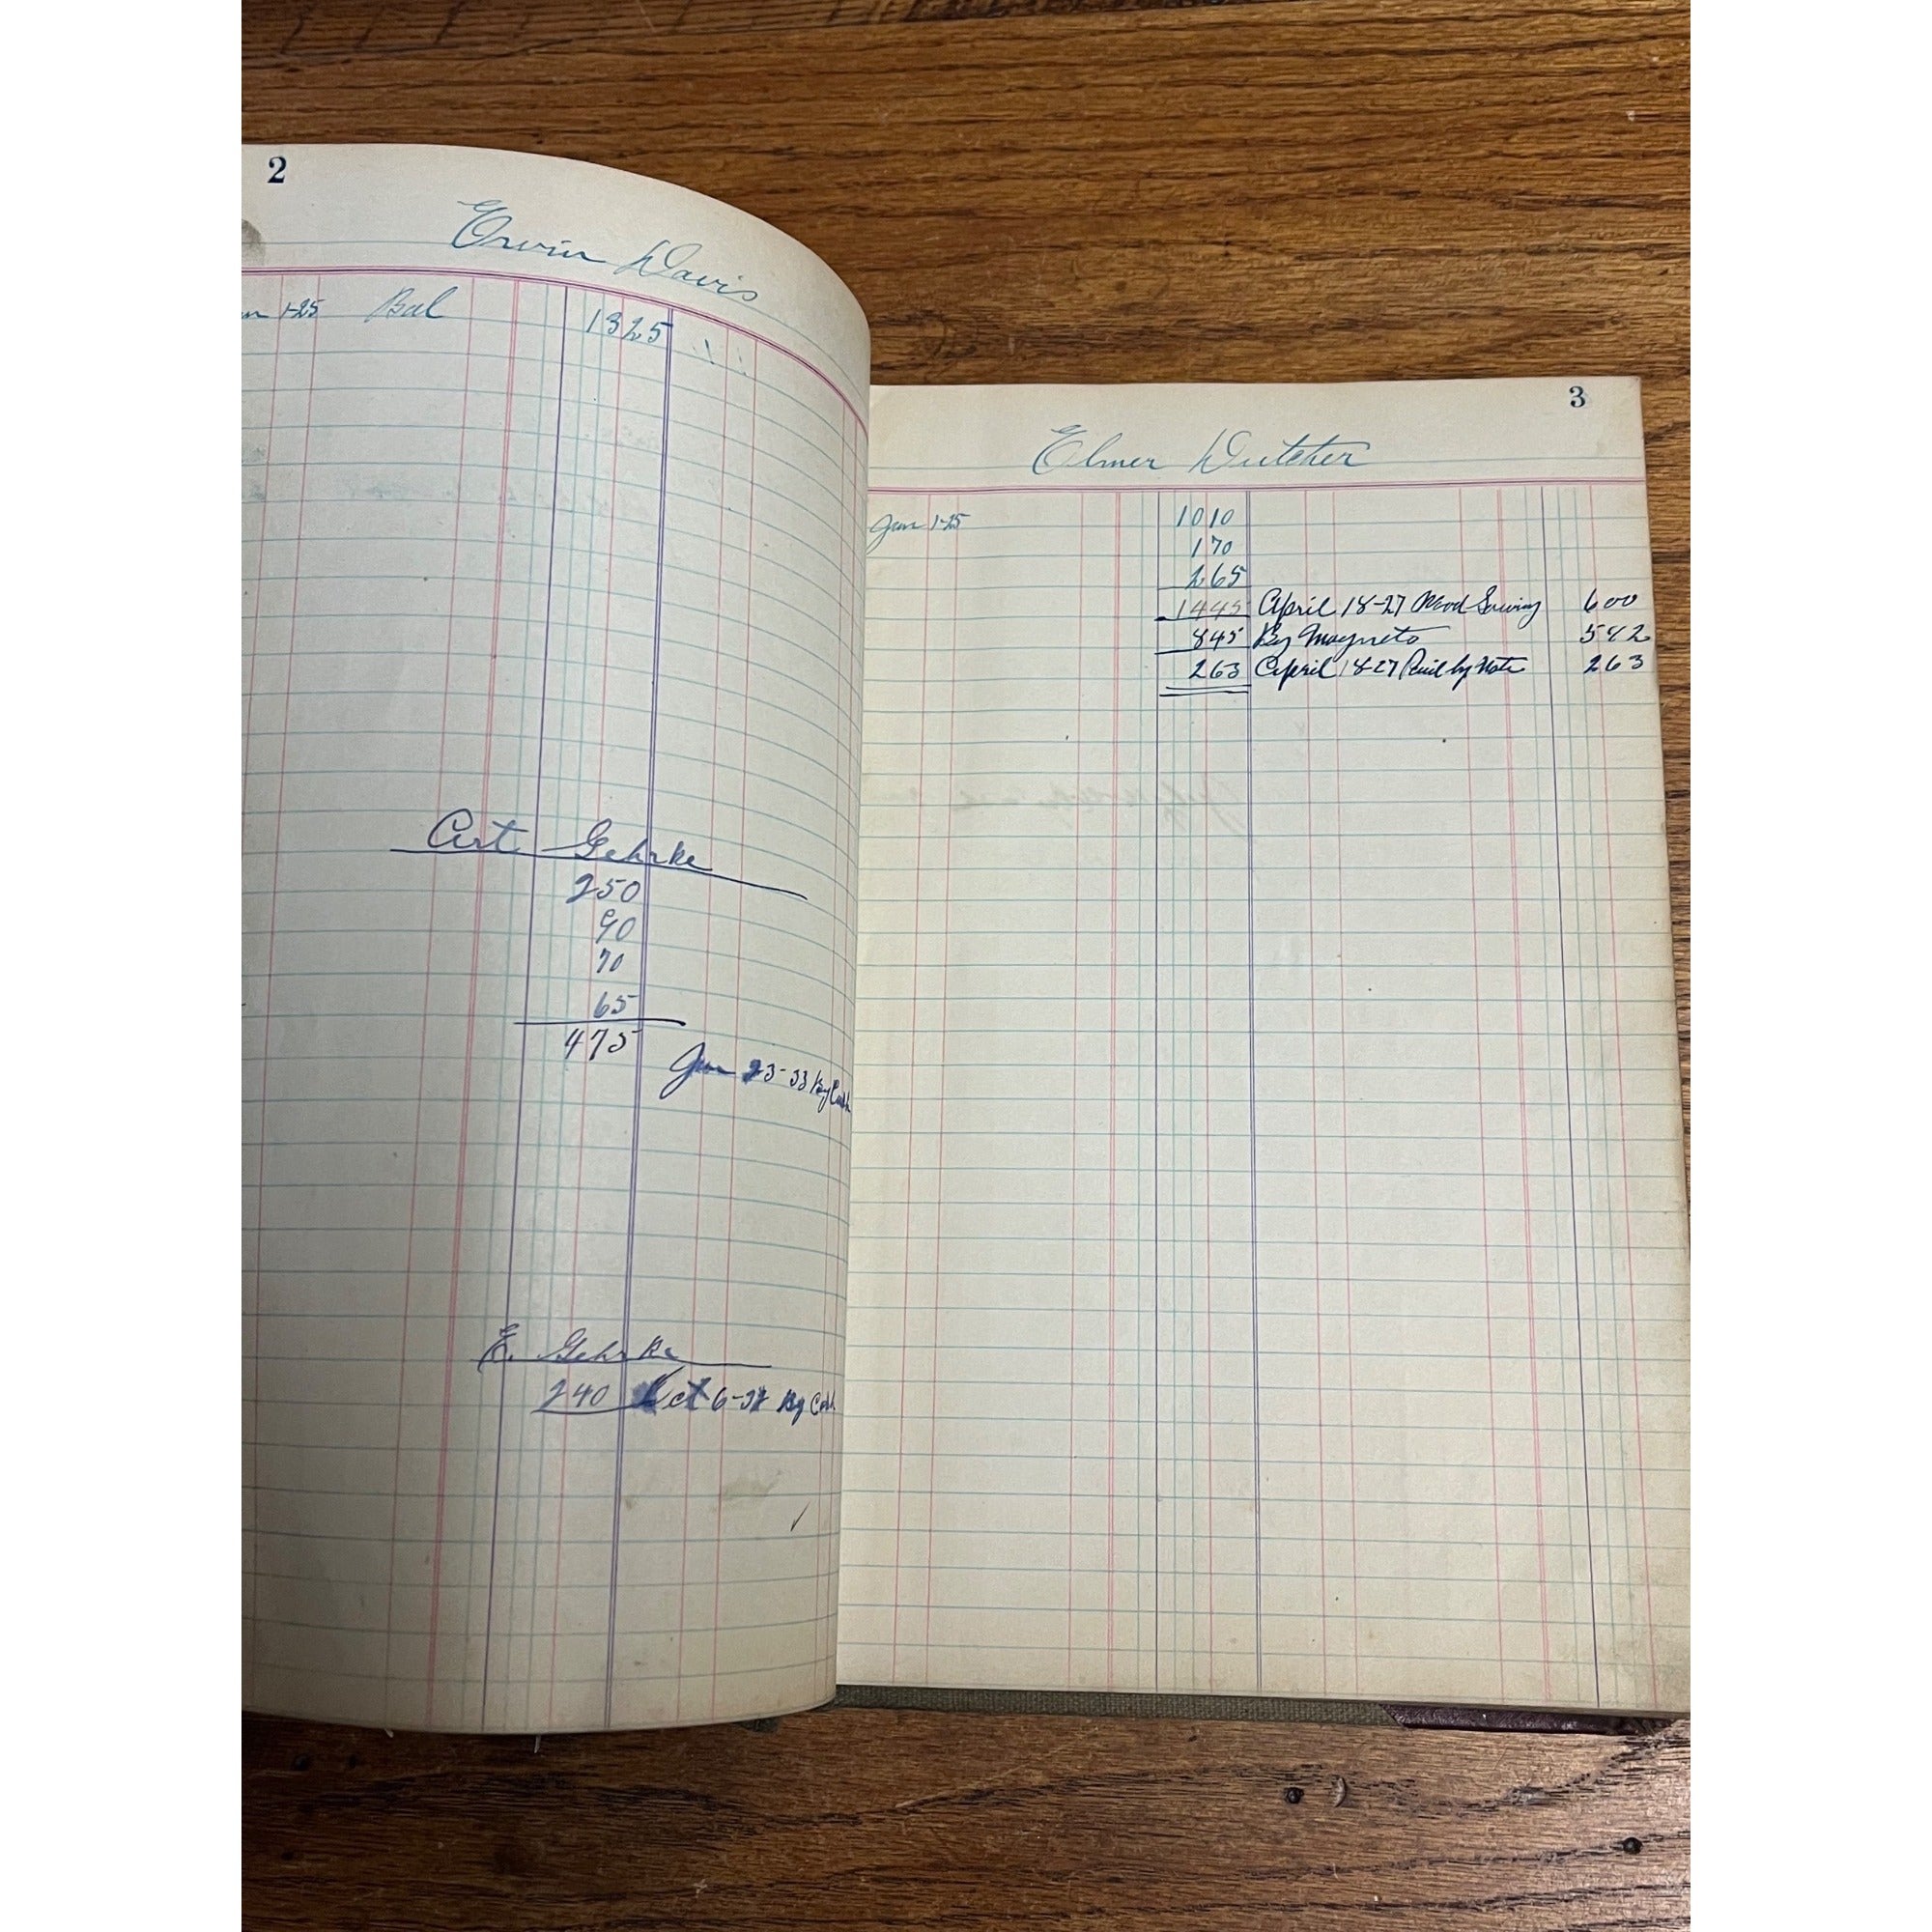 2
Erwin Davis
1-25 Bal 1325
Art Gehrke
250
90
70
65
475
Jan 23-33 By Cash
E. Gehrke
240 Oct 6-32 By Cash
3
Elmer Dutcher
Jan 1-25 1010
170
265
1445 April 18-27 Wood Sawing 600
845 By Magneto 582
263 April 18-27 Paid by Note 263